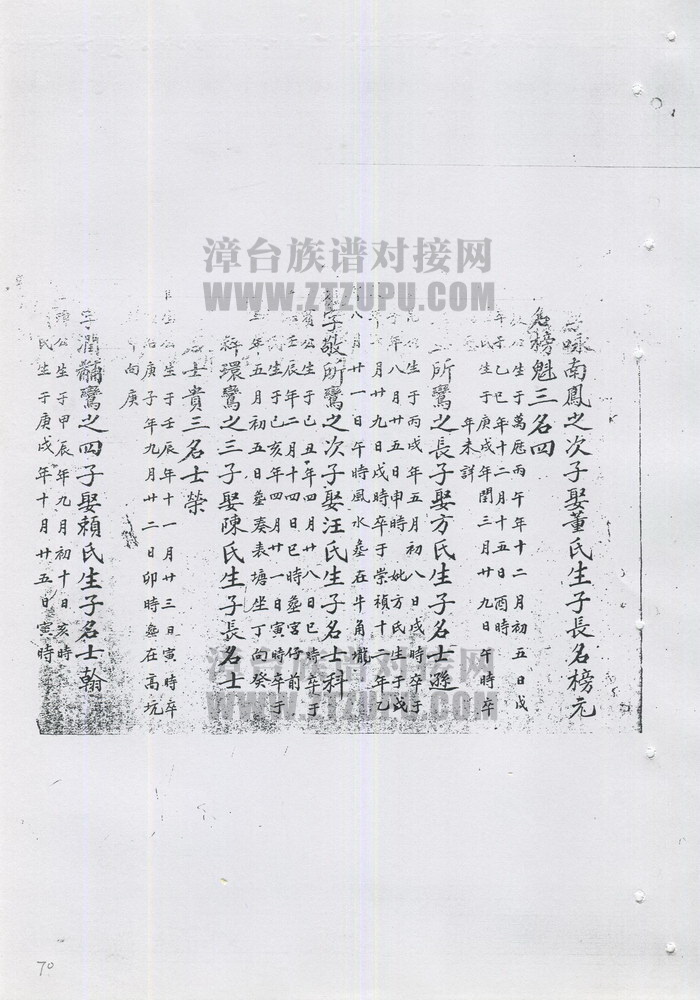 詠南鳳之次子娶董氏生子長名榜元
名榜魁三名四
公生于萬歷丙午年十二月初五日戌
年于乙巳年十二月十五日酉時
氏生于庚戌年閏三月廿九日午時卒
年未詳
所鸞之長子娶方氏生子名士遜
生于丙戌年五月初八日戌時卒于
子年八月廿五日申時妣方氏生于戊
月廿九日戌時卒于崇禎十二年乙
八月廿一日午時風水塋在牛角壠
字敬所鸞之次子娶汪氏生子名士科
公生于己丑年四月廿八日巳時卒于
壬辰年二月十四日巳時塋宮仔前
生于己亥年四月廿一日寅時卒于
年五月初五日塋湊表塘坐丁向癸
環鸞之三子娶陳氏生子長名士
士貴三名士榮
公生于壬辰年十一月廿三日寅時卒
庚子年九月廿二日卯時塋在高坑
向庚
字潤鸞之四子娶賴氏生子名士翰
公生于甲辰年九月初十日亥時
氏生于庚戌年十月廿五日寅時
漳台族谱对接网
WWW.ZTZUPU.COM
漳台族谱对接网
WWW.ZTZUPU.COM
70